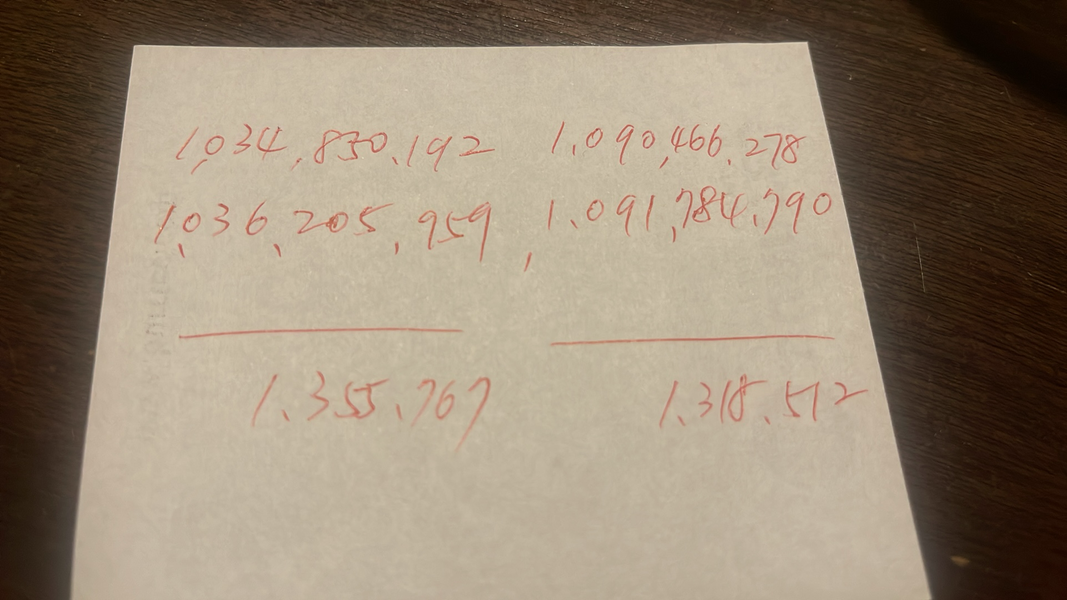 1,034,850,192 1.090,466.278
1,036,205,959, 1.091,784.790
1.355.767 1.318.512